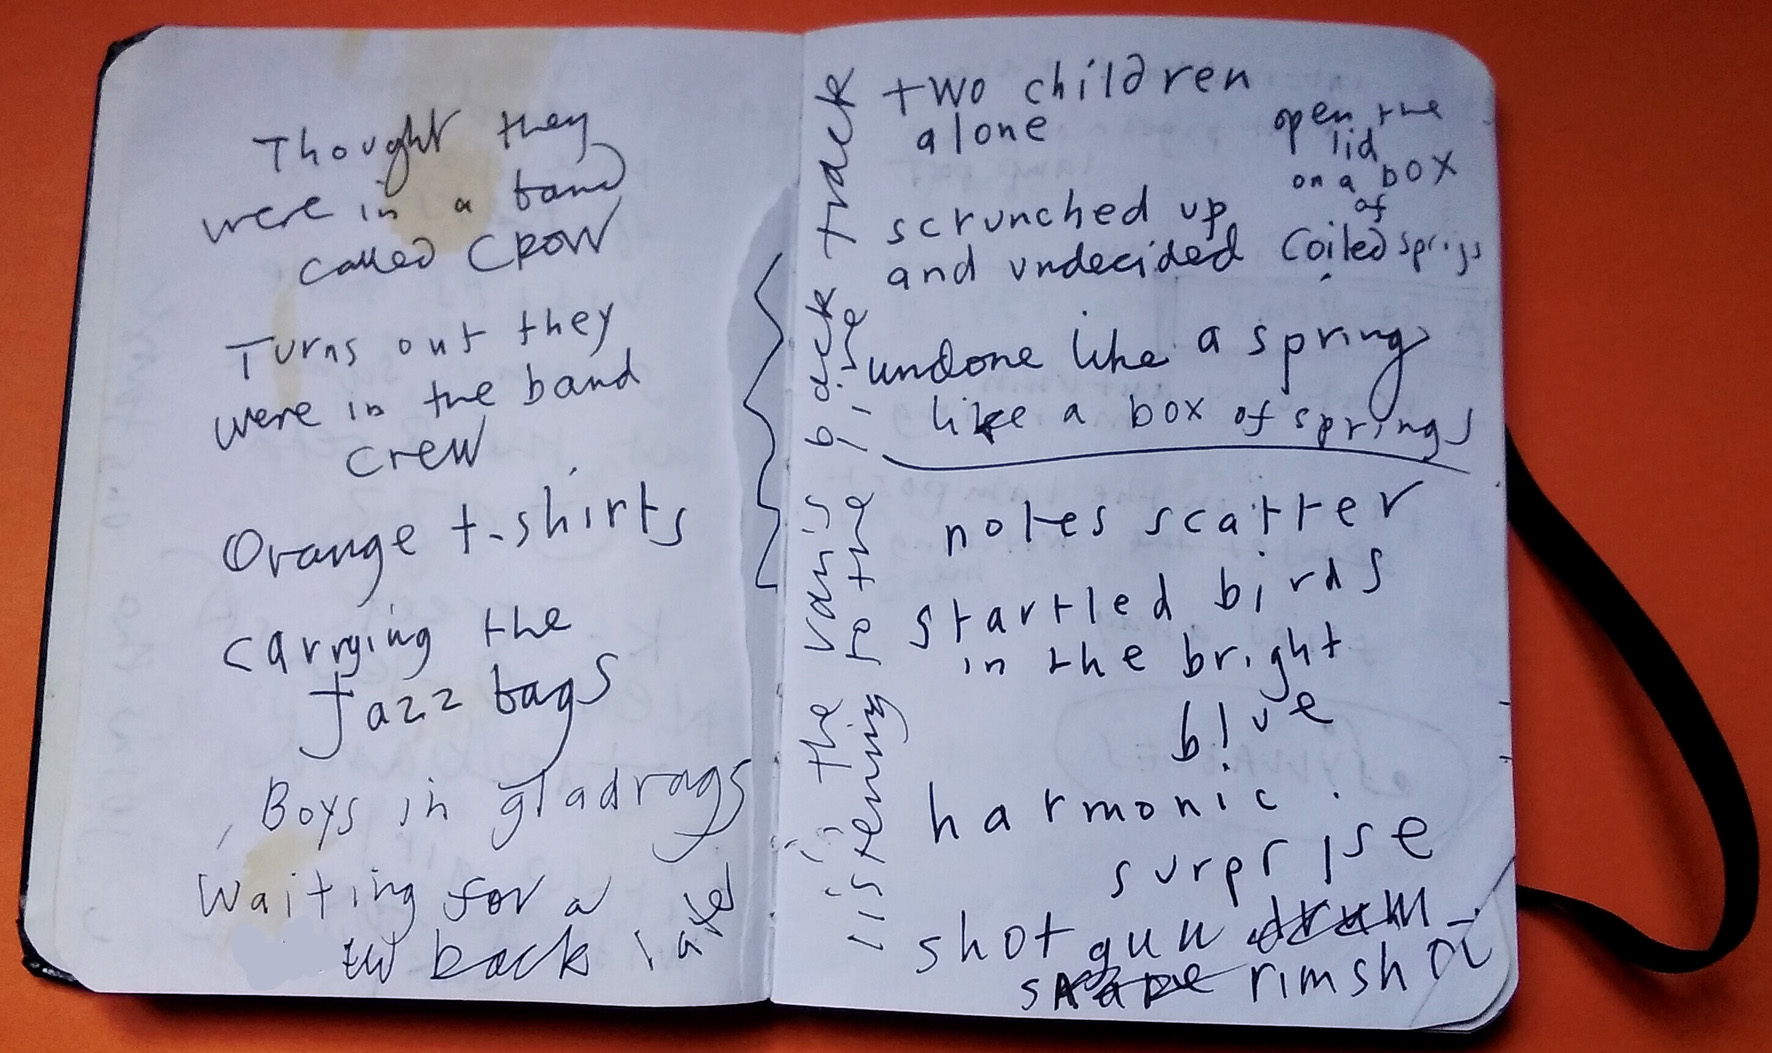 Thought they
were in a band
called CROW
Turns out they
were in the band
crew
Orange t-shirts
carrying the
Jazz bags
Boys in gladrags
Waiting for a
back
the van is back track
listening to the
two children
alone
scrunched up
and undecided
open the
lid
on a box
of
coiled springs
undone like a spring
like a box of springs
notes scatter
startled birds
in the bright
blue
harmonic
surprise
shot gun drum
snare rimshot